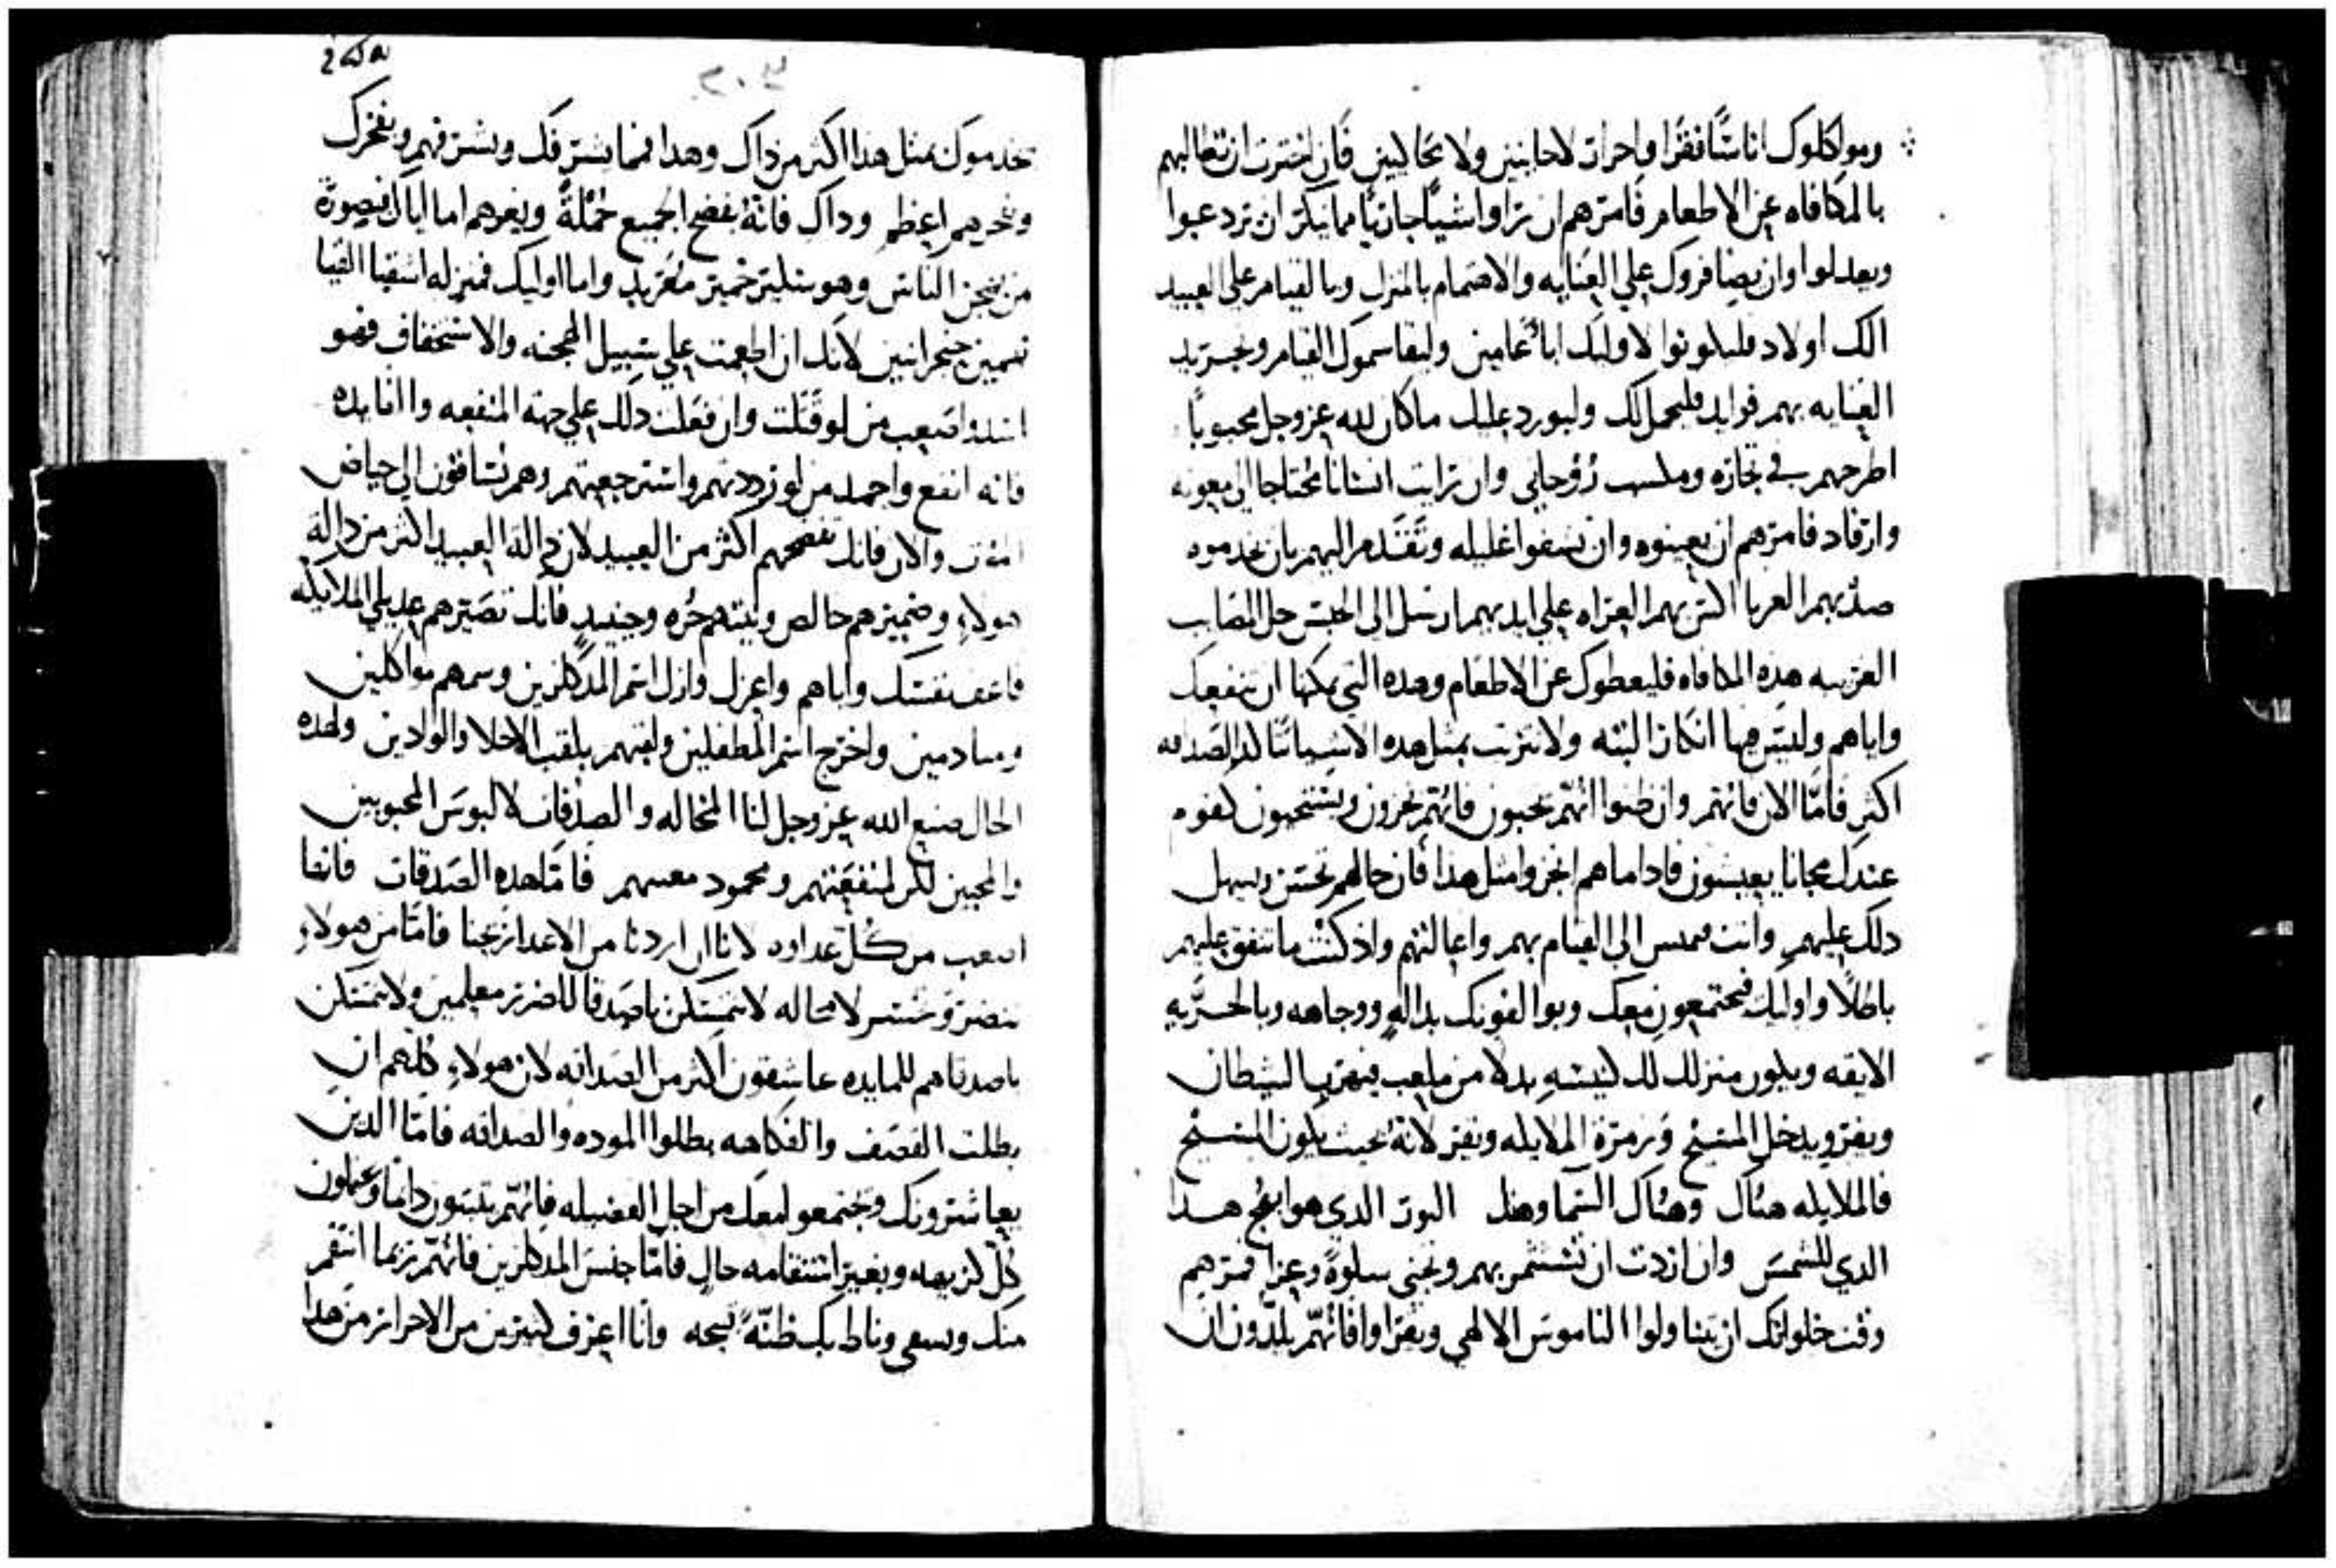 ومواكلوك اناسًا فقرا واحرار لاخابنين ولا نخاليين فان اخترت ان تطالبهم
بالمكافاه عن الاطعام فامرهم ان تراوا شيًا جاريًا مما ينكر ان يردعوا
ويعدلوا وان يضافروك علي العنايه والاهتمام بالمنزل وبالقيام علي العبيد
الك اولاد فليكونوا لاوليك ابا عامين وليقاسموك القيام
العنايه بهم فوايد فليجمل لك وليورد عليك ماكان لله عز وجل محبوبًا
اطرحهم في تجاره روحاني وان رايت انسانا محتاجا الي معونه
وارفاد فامرهم ان يعينوه وان يشفوا غليله وتقدم اليهم بان يخدموه
صد بهم العريا اكس بهم العراه علي ايديهم ارسل الي الحبس حل المصايب
الغريبه هذه المكافاه فليعطوك عن الاطعام وهذه التي يمكنها ان تنفعك
واياهم وليس فيها انكار البته ولا بمثل هذه الاشيا الصداقه
اكثر فامّا الان فانهم وان ظنوا انهم يحبون فانهم يخزون ويستحيون كقوم
عندك مجانا يعيشون فاذا ما هم انجزوا مثل هذا فان حالهم تحسن ويسهل
دلك عليهم وانت الي القيام بهم واعالتهم واذ كنت ما تنفق عليهم
باطلًا واوليك فيجتمعون معك ويوالفونك بداله ووجاهه وبالحريه
الايقه ويكون منزلك لك كنيسه بدلا من ملعب فيهرب الشيطان
ويفر ويدخل المسيح وزمرة الملايكه وتفر لانه بحيث يكون المسيح
فالملايكه هناك وهناك السما وهنك النور الذي هو ابهج هدا
الدي للشمس وان اردت ان تستثمر بهم وتجني سلوة وعزا فمرهم
وقت خلواتك ان يتناولوا الناموس الالهي ويقراوا فانهم يلدون ان
يخدموك بمثل هدا اكثر من داك وهدا فما يشرفك ويشرفهم ويفخرك
ويفخرهم اعظم وداك فانهُ يفضح الجميع جملةً ويعرهم اما اياك فبصورة
من يمجن الناس وهو سكير خمير معربد واما اوليك فمنزله اشقيا القيا
نهمين حنجرانيين لانك ان اطعمت علي سبيل الهجنه والاستخفاف فهو
اشد واصعب من لو قتلت وان فعلت دلك علي جهة المنفعه والفايده
فانه انفع واحمد من لو رددتهم واسترجعتهم وهم يُساقون الي حياض
الموت والان فانك تفضحهم اكثر من العبيد لان دالة العبيد اكثر من دالة
هولاء وضميرهم خالص ونيتهم حُره وحينيد فانك تصيرهم عديلي الملايكه
فاعف نفسك واياهم واعزل وازل اسم المدكلرين وسمهم مواكلين
ومنادمين واخرج اسم المطفلين ولقبهم بلقب الاخلا والوادين ولهده
الحال صنع الله عز وجل لنا المخاله والصدقات لا لبوس المحبوبين
والمحبين لكن لمنفعتهم ومحمود فامّا هده الصداقات فانها
اصعب من كُل عداوه لانا ان اردنا من الاعدا ربحنا فامّا من هولاء
لا محاله لا تمسكن باصدقا للضرر معلمين ولا تمسكن
باصدقا هم للمايده عاشقون اكثر من الصداقه لان هولاء كُلهم ان
بطلت القصف والفكاهه بطلوا الموده والصداقه فامّا الدين
يعاشرونك ويجتمعوا معك من اجل الفضيله فانهم يثبتون دايما ويحملون
كُل كريهه وبغير استقامه حال فامّا جنس المدكلرين فانهم ربما انتقم
منك وسعى وناط بك ظنّةً سمجه وانا اعرف كثيرين من الاحرار من هدا